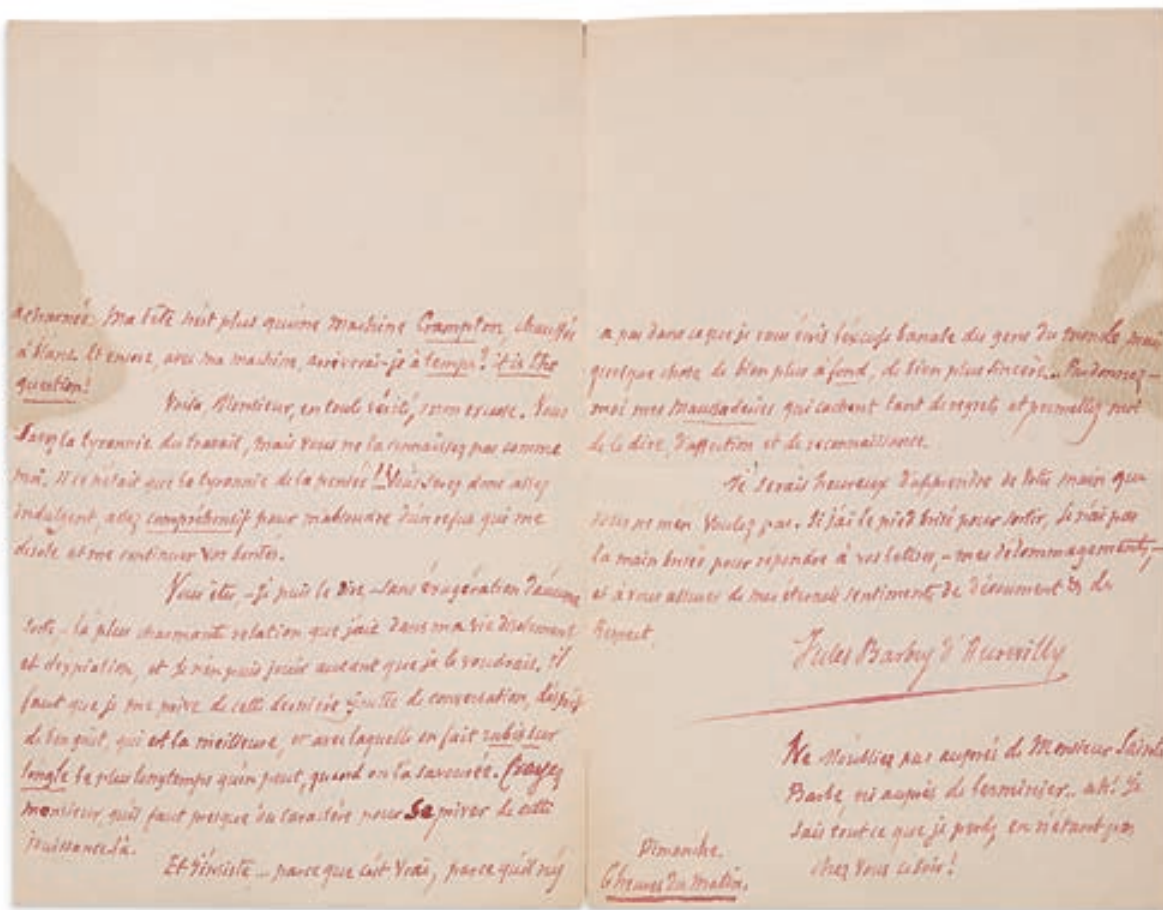 acharnée. Ma tête n'est plus qu'une machine Crampton, chauffée
à blanc. Et encore, avec ma machine, arriverai-je à temps? it is the
question!
Voilà, Monsieur, en toute vérité, mon excuse. Vous
savez la tyrannie du travail, mais vous ne la connaissez pas comme
moi. Si ce n'était que la tyrannie de la pensée!! Vous serez donc assez
indulgent, assez compréhensif pour m'absoudre d'un refus qui me
désole et me continuer vos bontés.
Vous êtes, – je puis le dire – sans éxagération d'aucune
sorte – la plus charmante relation que j'aie dans ma vie d'isolement
et d'expiation, et je n'en puis jouir autant que je le voudrais. Il
faut que je me prive de cette dernière goutte de conversation, d'esprit
de bon goût, qui est la meilleure, et avec laquelle on fait rubis sur
l'ongle le plus longtemps qu'on peut, quand on l'a savourée. Croyez
monsieur, qu'il faut presque du caractère pour se priver de cette
jouissance là.
Et j'insiste – parce que c'est vrai, parce qu'il n'y
a pas dans ce que je vous écris l'excuse banale des gens du monde, mais
quelque chose de bien plus à fond, de bien plus sincère... Pardonnez-
moi mes maussaderies qui cachent tant de regrets et permettez moi
de le dire, d'affection et de reconnaissance.
Je serais heureux d'apprendre de votre main que
vous ne m'en voulez pas. Si j'ai le pied brisé pour sortir, je n'ai pas
la main brisée pour répondre à vos lettres, – mes dédommagements, –
et à vous assurer de mes éternels sentiments de dévouement & de
respect.
Jules Barbey d'Aurevilly
Ne m'oubliez pas auprès de Monsieur Sainte
Barbe ni auprès de Lerminier.. ah! je
sais tout ce que je perds, en n'étant pas
chez vous ce soir!
Dimanche.
6 heures du matin.